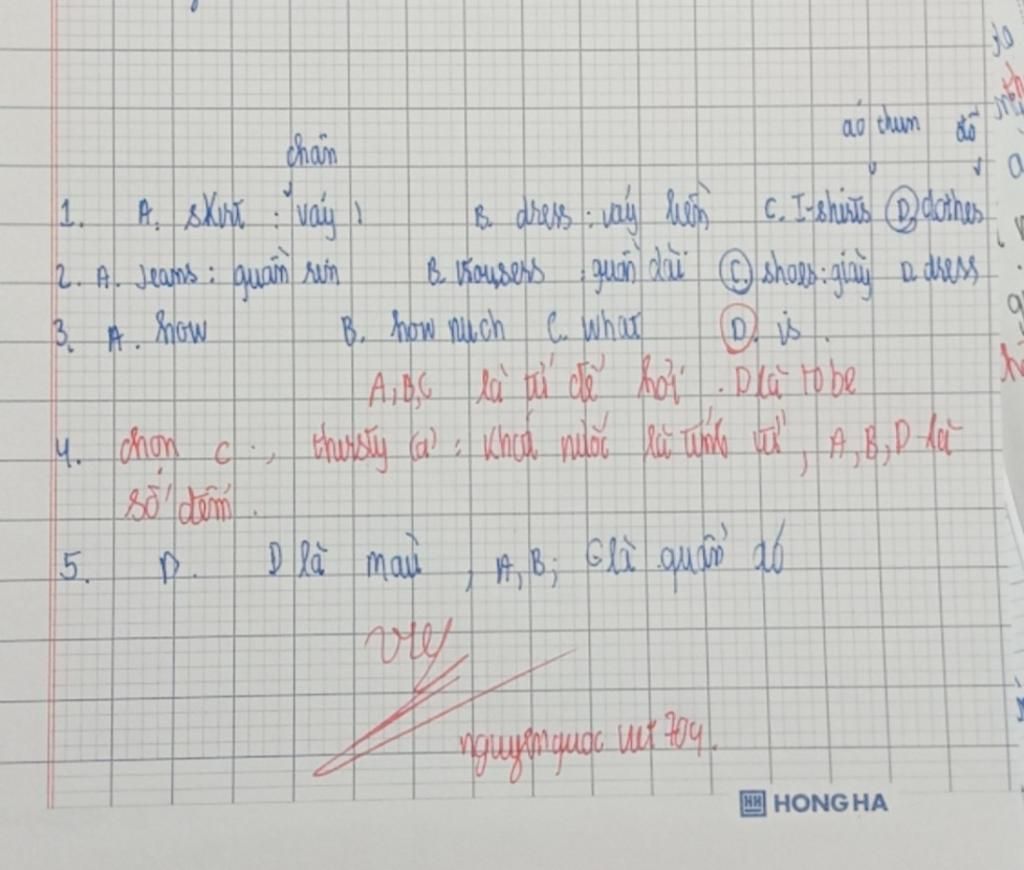 áo thun đồ
chân
1. A. skirt : váy B. dress : váy liền C. T-shirts D. clothes
2. A. Jeams : quần jean B. trousers : quần dài C shoes : giày D. dress
3. A. how B. how much C. what D. is.
A, B, C là từ để hỏi. D là to be
4. chọn c ; thirsty (a) : khát nước là tính từ, A, B, D là
số đếm.
5. D. D là màu, A, B; C là quần áo
HONG HA